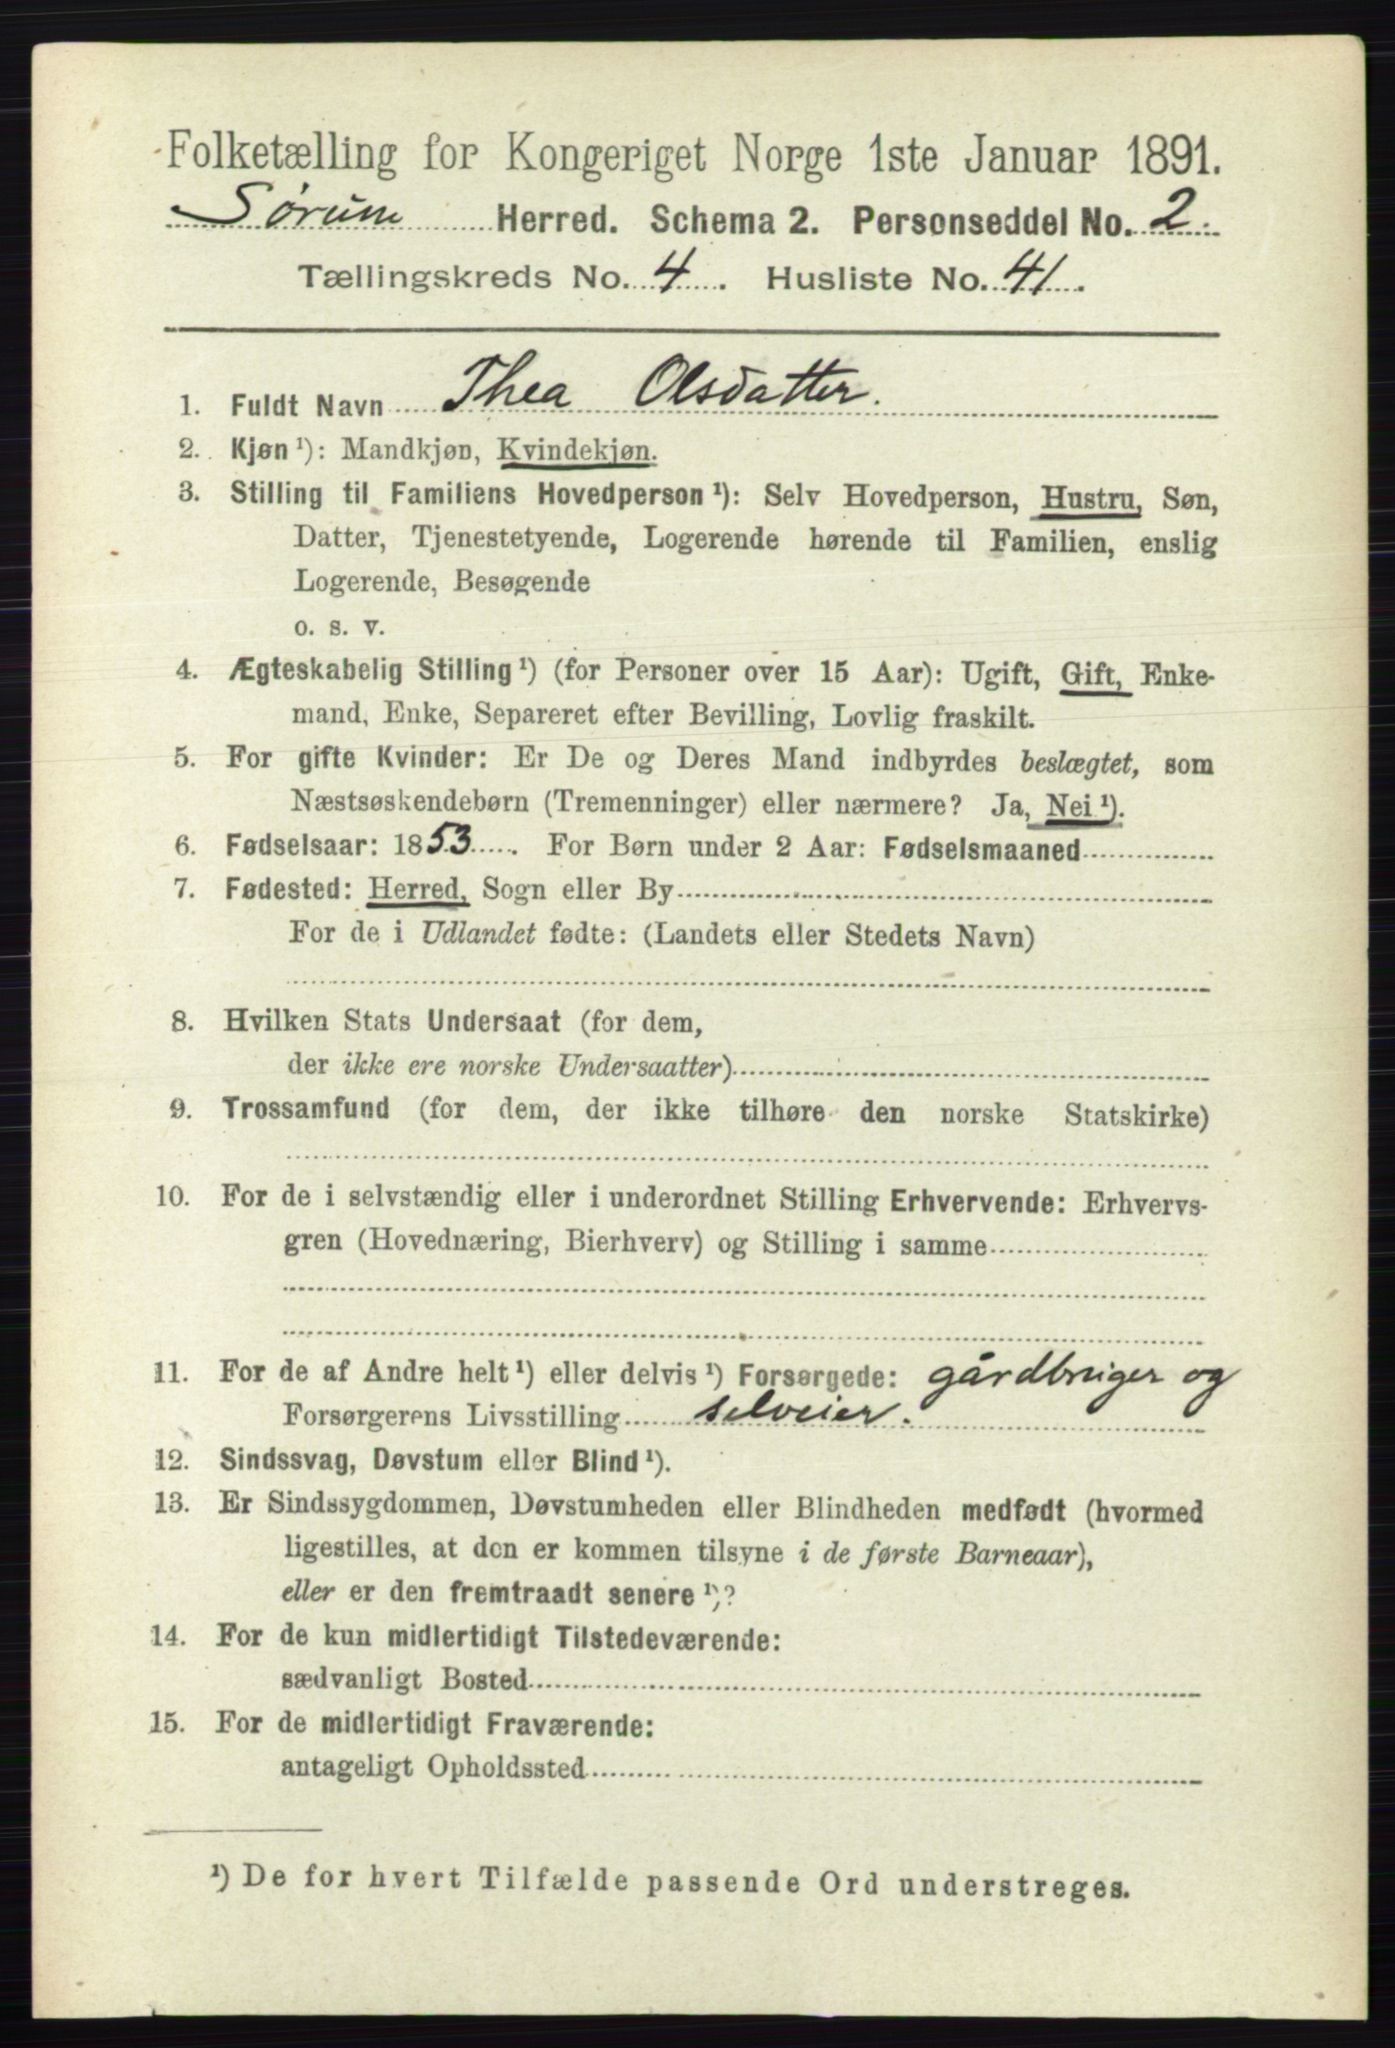 Folketælling for Kongeriget Norge 1ste Januar 1891.
Sørum Herred. Schema 2. Personseddel No. 2.
Tællingskreds No. 4. Husliste No. 41.
1. Fuldt Navn Thea Olsdatter.
2. Kjøn ¹): Mandkjøn, Kvindekjøn.
3. Stilling til Familiens Hovedperson ¹): Selv Hovedperson, Hustru, Søn,
Datter, Tjenestetyende, Logerende hørende til Familien, enslig
Logerende, Besøgende
o. s. v.
4. Ægteskabelig Stilling ¹) (for Personer over 15 Aar): Ugift, Gift, Enke-
mand, Enke, Separeret efter Bevilling, Lovlig fraskilt.
5. For gifte Kvinder: Er De og Deres Mand indbyrdes beslægtet, som
Næstsøskendebørn (Tremenninger) eller nærmere? Ja, Nei ¹).
6. Fødselsaar: 1853. For Børn under 2 Aar: Fødselsmaaned
7. Fødested: Herred, Sogn eller By
For de i Udlandet fødte: (Landets eller Stedets Navn)
8. Hvilken Stats Undersaat (for dem,
der ikke ere norske Undersaatter)
9. Trossamfund (for dem, der ikke tilhøre den norske Statskirke)
10. For de i selvstændig eller i underordnet Stilling Erhvervende: Erhvervs-
gren (Hovednæring, Bierhverv) og Stilling i samme
11. For de af Andre helt ¹) eller delvis ¹) Forsørgede: gårdbruger og
Forsørgerens Livsstilling selveier.
12. Sindssvag, Døvstum eller Blind ¹).
13. Er Sindssygdommen, Døvstumheden eller Blindheden medfødt (hvormed
ligestilles, at den er kommen tilsyne i de første Barneaar),
eller er den fremtraadt senere ¹)?
14. For de kun midlertidigt Tilstedeværende:
sædvanligt Bosted
15. For de midlertidigt Fraværende:
antageligt Opholdssted
¹) De for hvert Tilfælde passende Ord understreges.